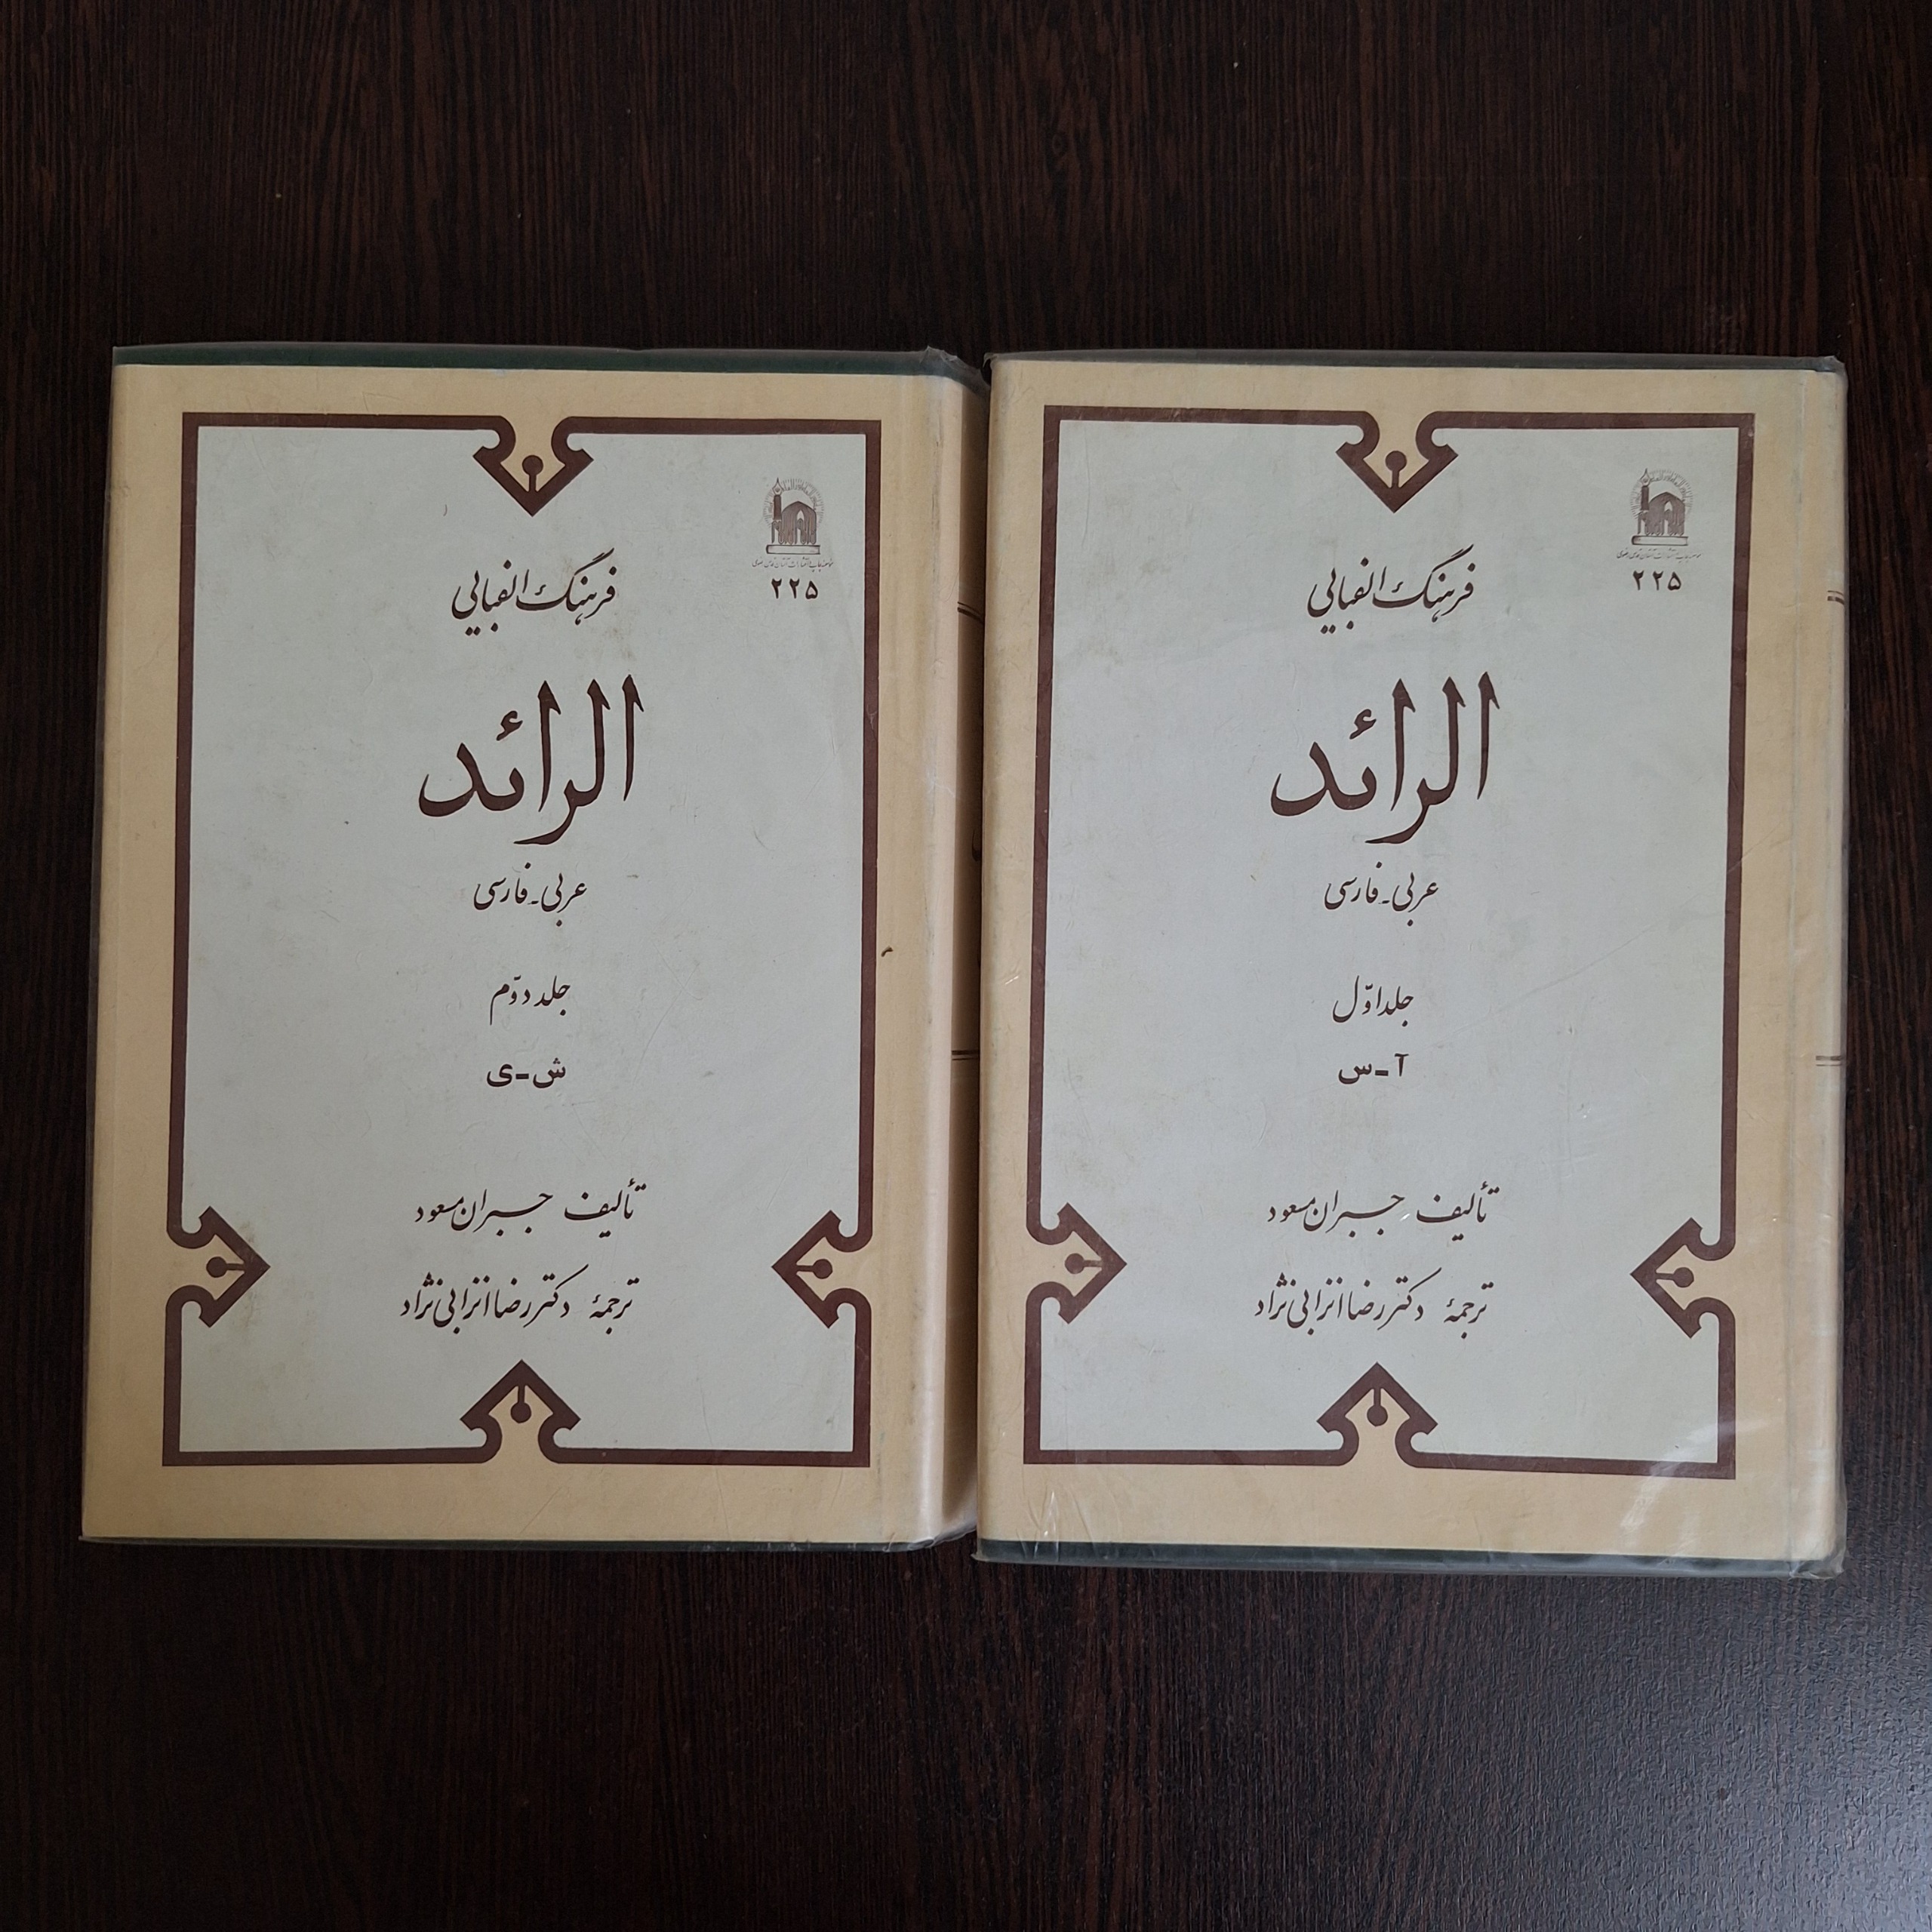 ۲۲۵
فرهنگ الفبایی
الرائد
عربی-فارسی
جلد اوّل
آ-س
تألیف جبران مسعود
ترجمهٔ دکتر رضا انزابی نژاد
۲۲۵
فرهنگ الفبایی
الرائد
عربی-فارسی
جلد دوّم
ش-ی
تألیف جبران مسعود
ترجمهٔ دکتر رضا انزابی نژاد